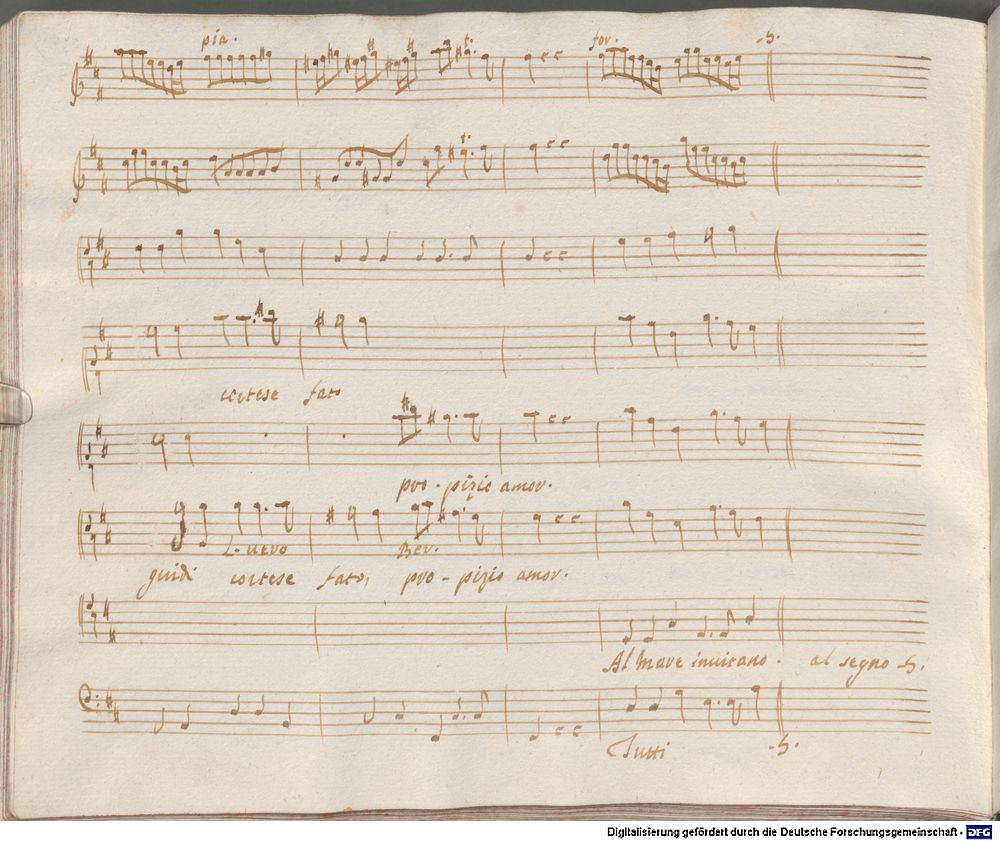 pia. for. -S.
cortese fato
pro-pizio amor.
L. vero Ber.
guidi cortese fato, pro-pizio amor.
Al mare invitano. al segno -S.
Tutti -S.
Digitalisierung gefördert durch die Deutsche Forschungsgemeinschaft - DFG